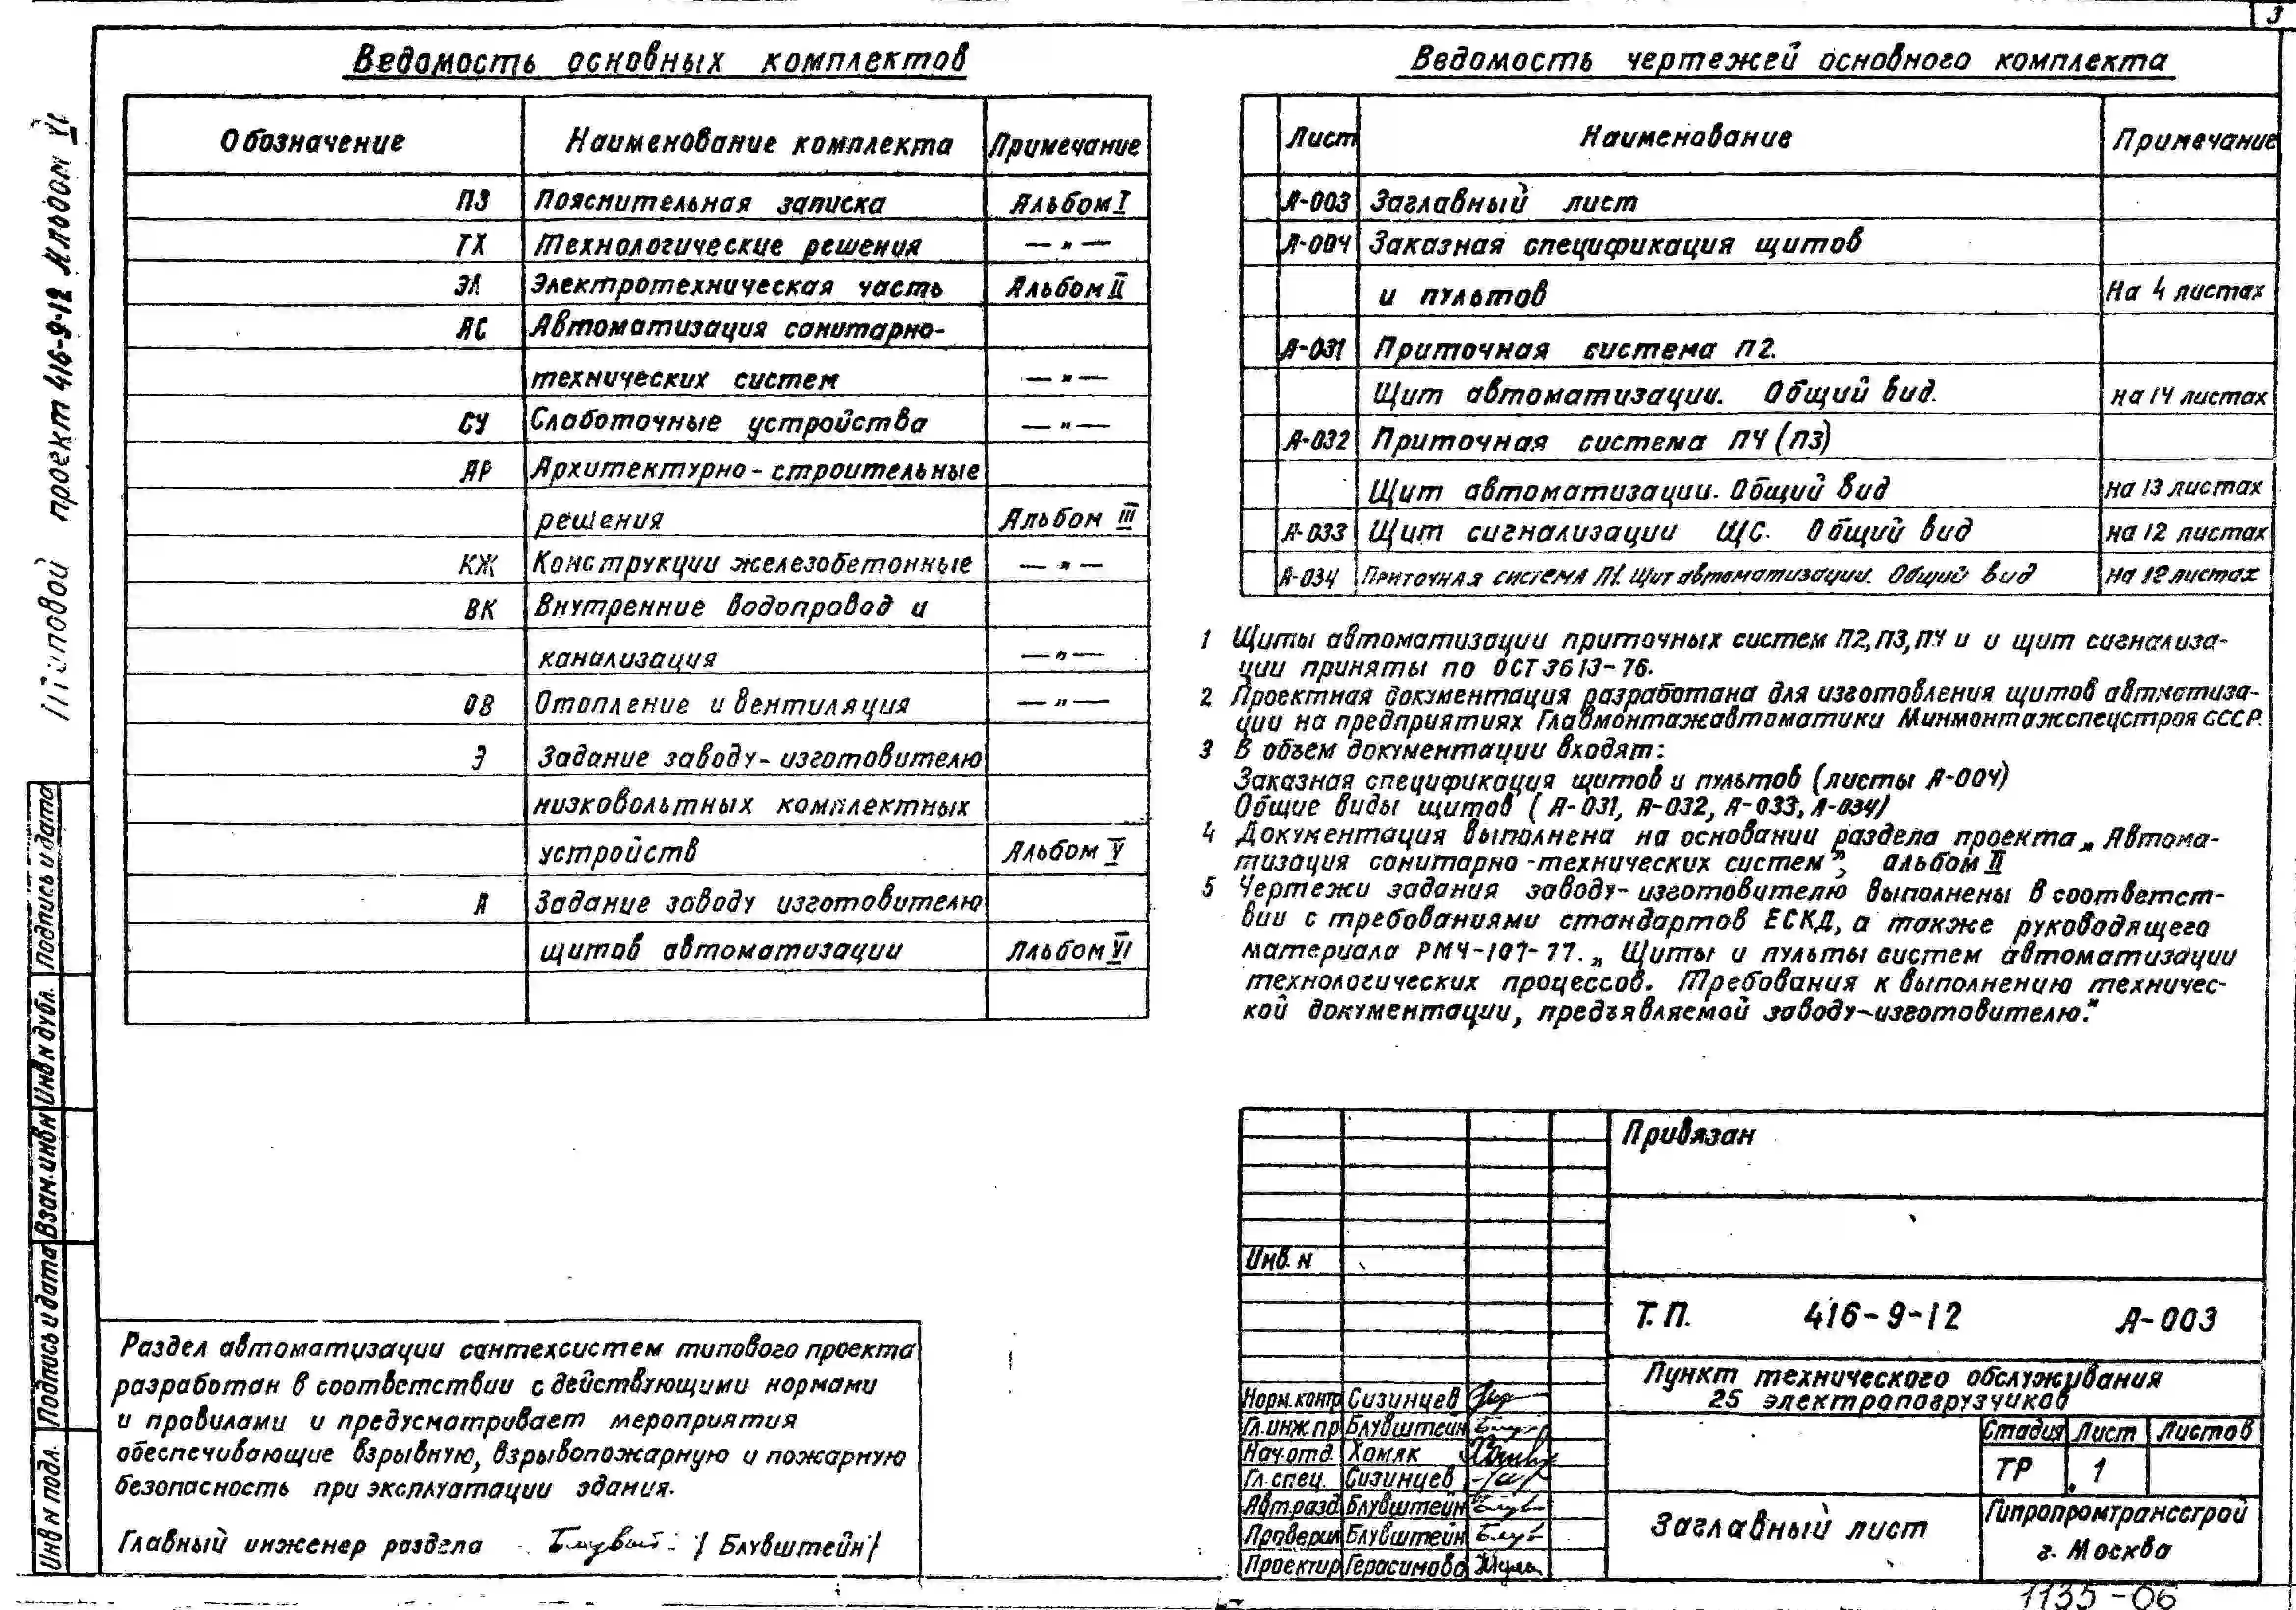 3
Типовой проект 416-9-12 Альбом VI
Ведомость основных комплектов
Обозначение Наименование комплекта Примечание
ПЗ Пояснительная записка Альбом I
ТХ Технологические решения — " —
ЭЛ Электротехническая часть Альбом II
АС Автоматизация санитарно-
технических систем — " —
СУ Слаботочные устройства — " —
АР Архитектурно-строительные
решения Альбом III
КЖ Конструкции железобетонные — " —
ВК Внутренние водопровод и
канализация — " —
ОВ Отопление и вентиляция — " —
Э Задание заводу-изготовителю
низковольтных комплектных
устройств Альбом V
А Задание заводу изготовителю
щитов автоматизации Альбом VI
Ведомость чертежей основного комплекта
Лист Наименование Примечание
А-003 Заглавный лист
А-004 Заказная спецификация щитов
и пультов На 4 листах
А-031 Приточная система П2.
Щит автоматизации. Общий вид. на 14 листах
А-032 Приточная система П4 (П3)
Щит автоматизации. Общий вид на 13 листах
А-033 Щит сигнализации ЩС. Общий вид на 12 листах
А-034 Приточная система П1. Щит автоматизации. Общий вид на 12 листах
1 Щиты автоматизации приточных систем П2, П3, П4 и и щит сигнализа-
ции приняты по ОСТ 36 13-76.
2 Проектная документация разработана для изготовления щитов автматиза-
ции на предприятиях Главмонтажавтоматики Минмонтажспецстроя СССР.
3 В объем документации входят:
Заказная спецификация щитов и пультов (листы А-004)
Общие виды щитов (А-031, А-032, А-033, А-034)
4 Документация выполнена на основании раздела проекта „Автома-
тизация санитарно-технических систем", альбом II
5 Чертежи задания заводу-изготовителю выполнены в соответст-
вии с требованиями стандартов ЕСКД, а также руководящего
материала РМ4-107-77. „Щиты и пульты систем автоматизации
технологических процессов. Требования к выполнению техничес-
кой документации, предъявляемой заводу-изготовителю."
Подпись и дата
Инв N дубл.
Взам. инв N
Подпись и дата
Инв N подл.
Раздел автоматизации сантехсистем типового проекта
разработан в соответствии с действующими нормами
и правилами и предусматривает мероприятия
обеспечивающие взрывную, взрывопожарную и пожарную
безопасность при эксплуатации здания.
Главный инженер раздела / Блувштейн /
Привязан
Инв. N
Т.П. 416-9-12 А-003
Пункт технического обслуживания
25 электропогрузчиков
Норм.контр Сизинцев
Гл.инж.пр Блувштейн
Нач.отд. Хомяк
Гл.спец. Сизинцев
Авт.разд. Блувштейн
Проверил Блувштейн
Проектир Герасимова
Стадия Лист Листов
ТР 1
Заглавный лист
Гипропромтрансстрой
г. Москва
1135-06